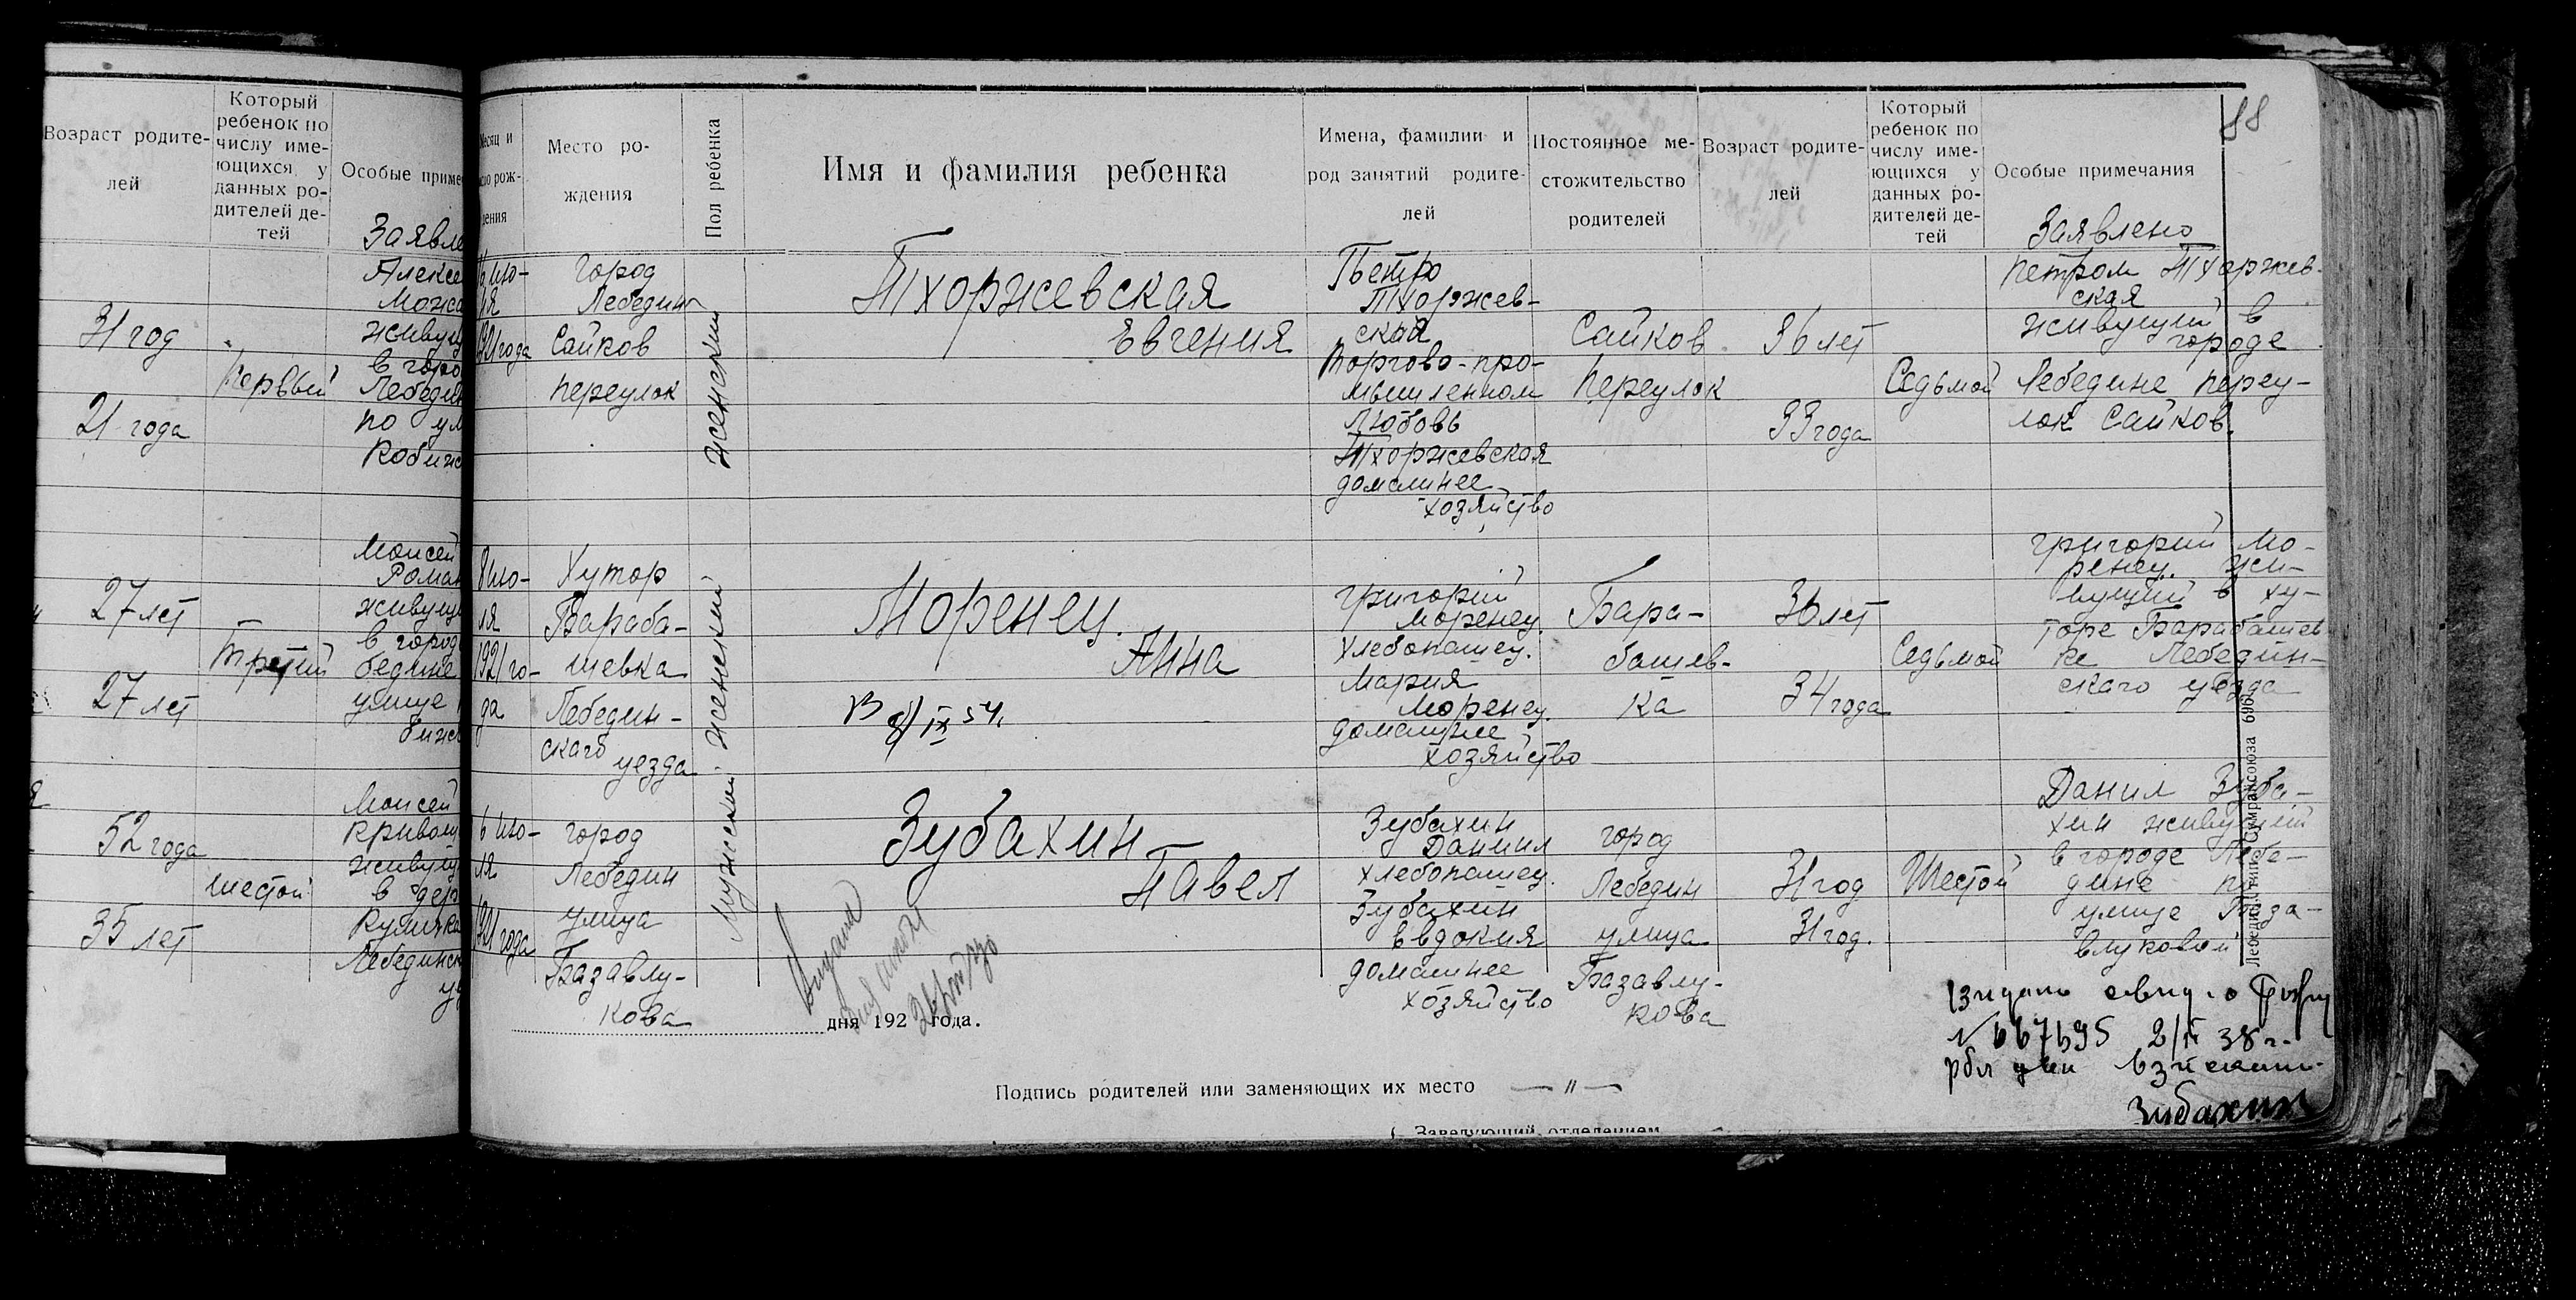 Возраст родите-
лей
Который
ребенок по
числу име-
ющихся у
данных ро-
дителей де-
тей
Особые приме
Заявле
Алексе
Можа
живущ
в горо
Лебедин
по ул
Кобиж
31 год
21 года
Первый
Моисей
Роман
живущ
в город
бедине
улице
бижс
27 лет
27 лет
Третий
Моисей
Кривош
живущ
в дер
Куличка
Лебединск
уе
52 года
35 лет
шестой
88
Месяц и
число рож-
дения
Место ро-
ждения
Пол ребенка
Имя и фамилия ребенка
Имена, фамилии и
род занятий родите-
лей
Постоянное ме-
стожительство
родителей
Возраст родите-
лей
Который
ребенок по
числу име-
ющихся у
данных ро-
дителей де-
тей
Особые примечания
6 ию-
ля
1921 года
город
Лебедин
Сайков
переулок
женский
Тхоржевская
Евгения
Петро
Тхоржев-
ский
Торгово-про-
мышленном
Любовь
Тхоржевская
домашнее
хозяйство
Сайков
переулок
36 лет
33 года
Седьмой
Заявлено
Петром Тхоржев-
ская
живущий в
городе
Лебедине переу-
лок Сайков.
8 ию-
ля
1921 го-
да
Хутор
Бараба-
шевка
Лебедин-
скаго
уезда
женский
Моренец.
Анна
В 8/IX 54.
Григорий
Моренец.
хлебопашец.
Мария
Моренец.
домашнее
хозяйство
Бара-
башев-
ка
36 лет
34 года
Седьмой
Григорий Мо-
ренец жи-
вущий в ху-
торе Барабашев
ке Лебедин-
скаго уезда
6 ию-
ля
1921 года
город
Лебедин
улица
Базавлу-
кова
Мужской
Зубахин
Павел
Зубахин
Даниил
хлебопашец.
Зубахин
Евдокия
домашнее
хозяйство
город
Лебедин
улица
Базавлу-
кова
31 год
31 год.
Шестой
Данил Зуба-
хин живущий
в городе Лебе-
дине по
улице База-
влуковой
дня 192 года.
Выдано свид. о
N 667695 2/II 38 г.
взискани
Зубахин
Подпись родителей или заменяющих их место —"—
Заведующий отделением